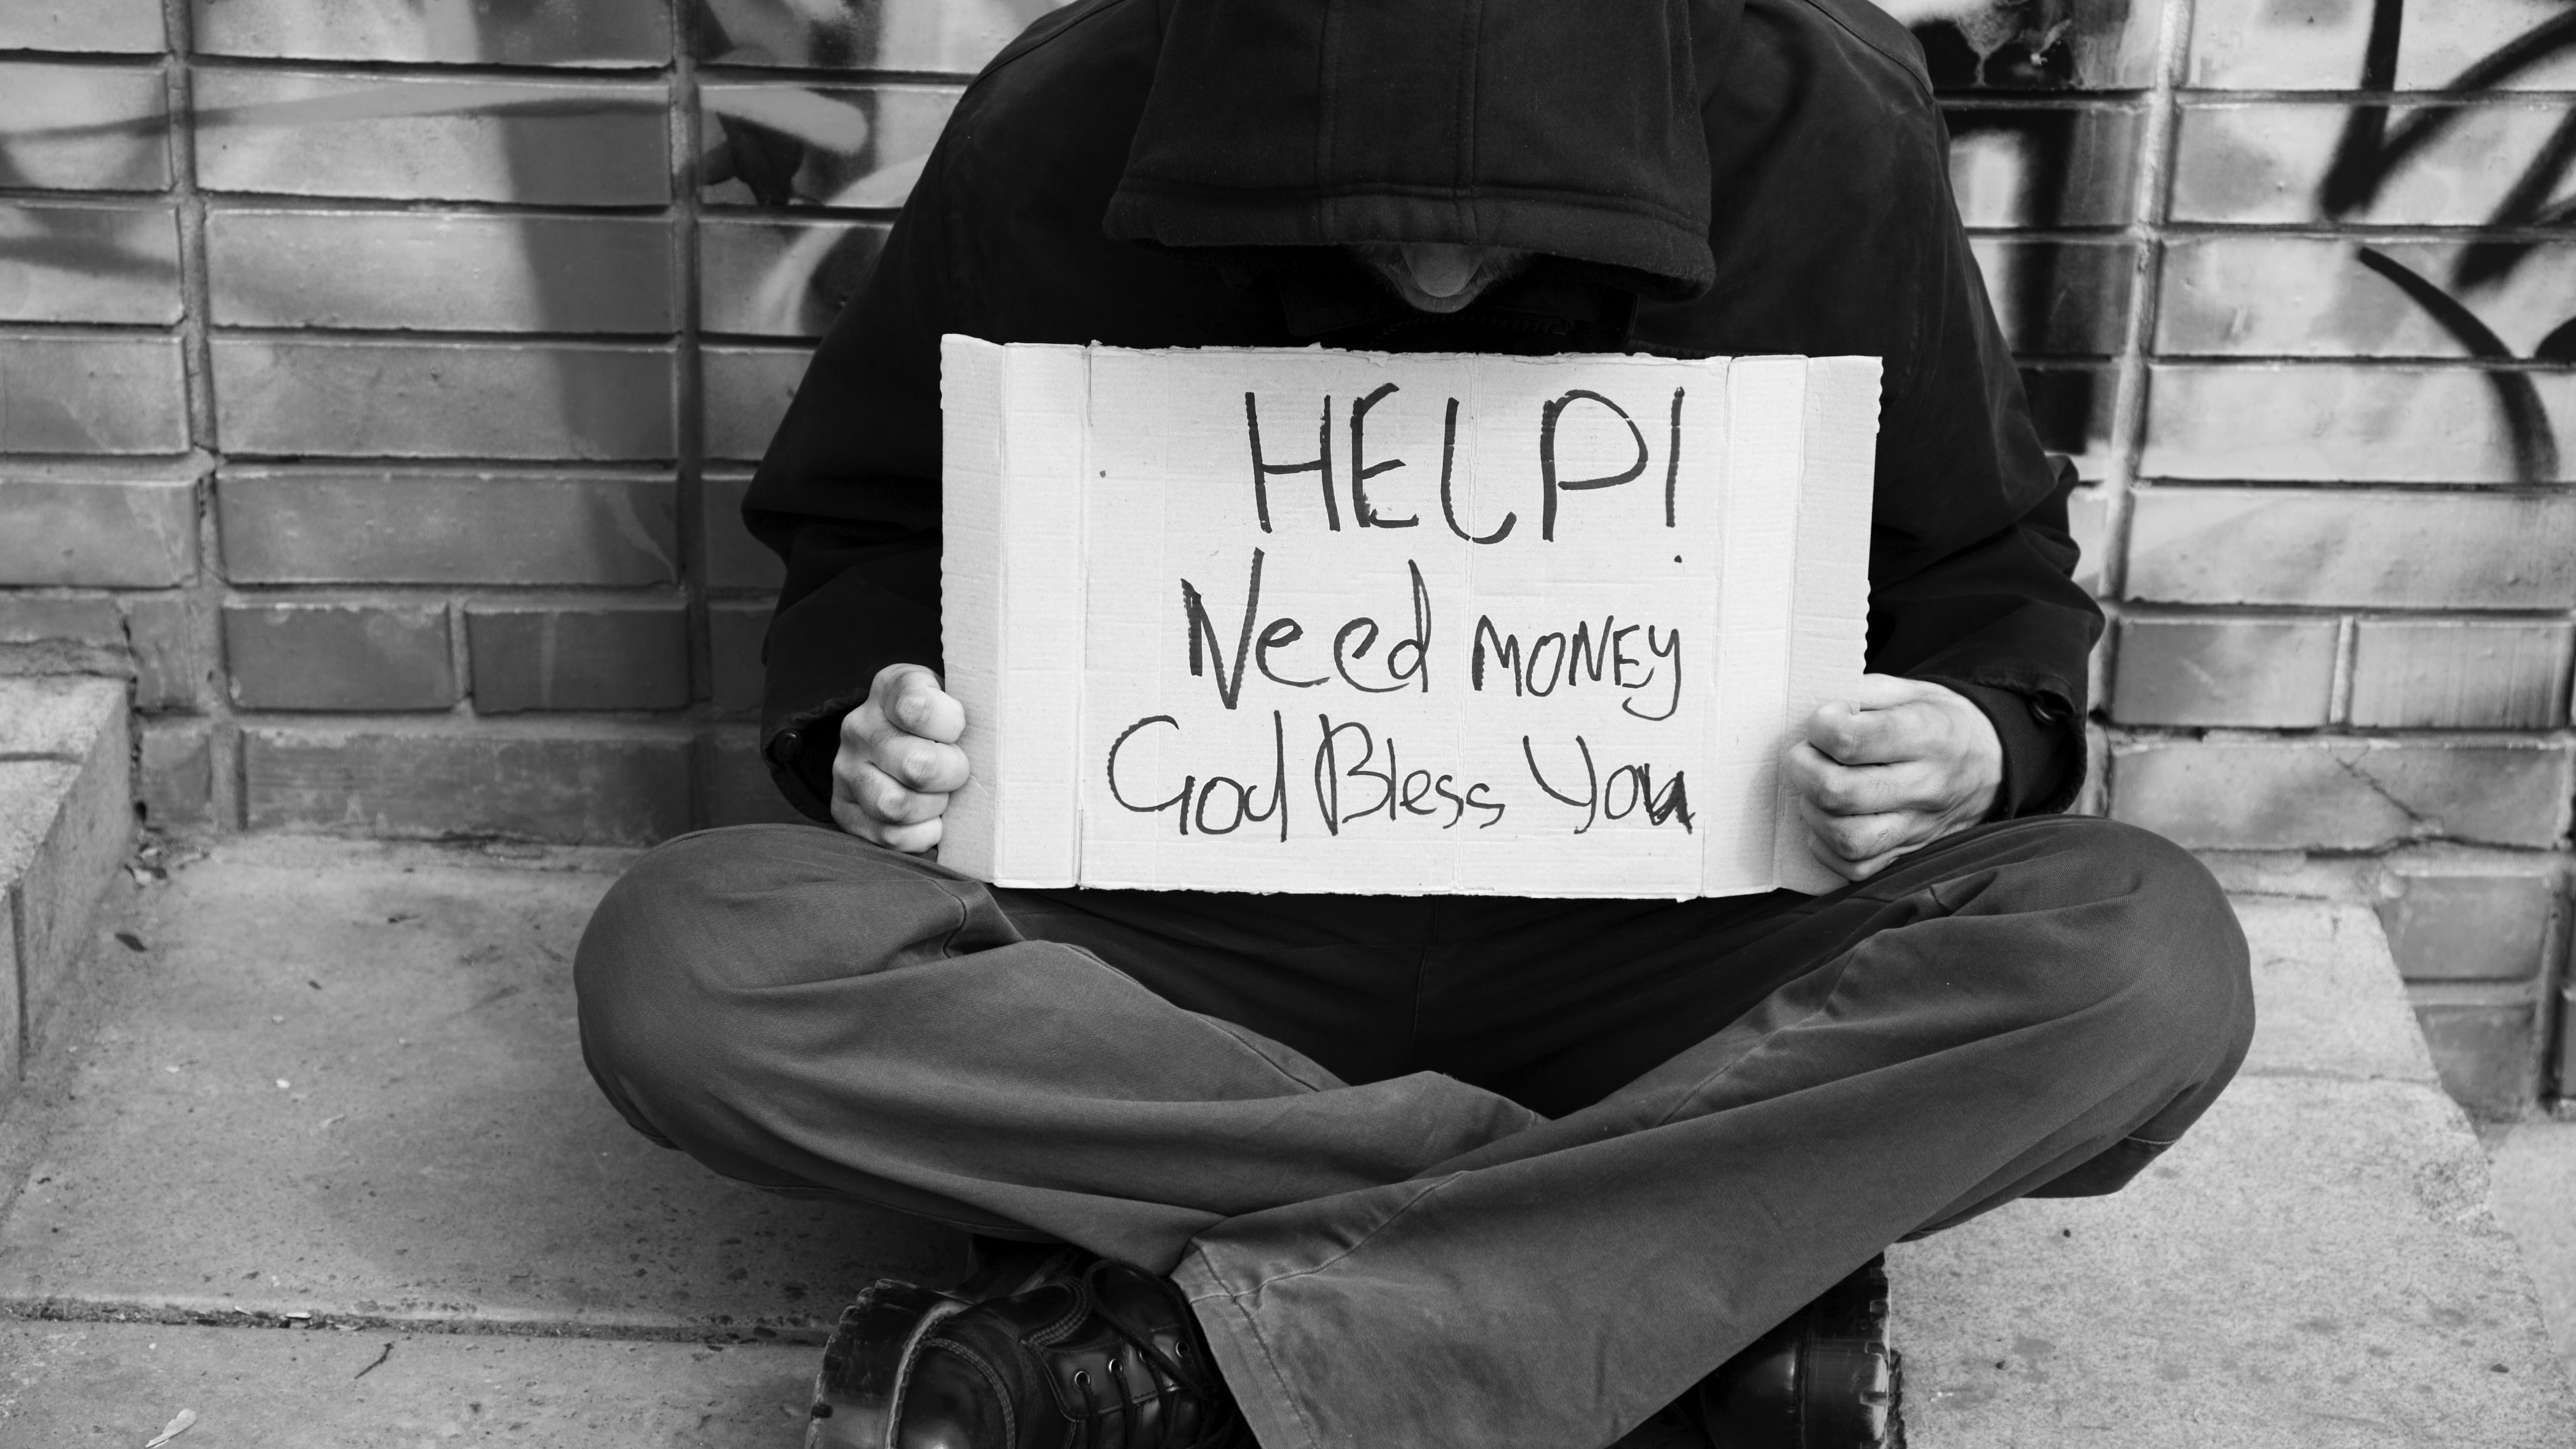 HELP!
Need MONEY
God Bless You